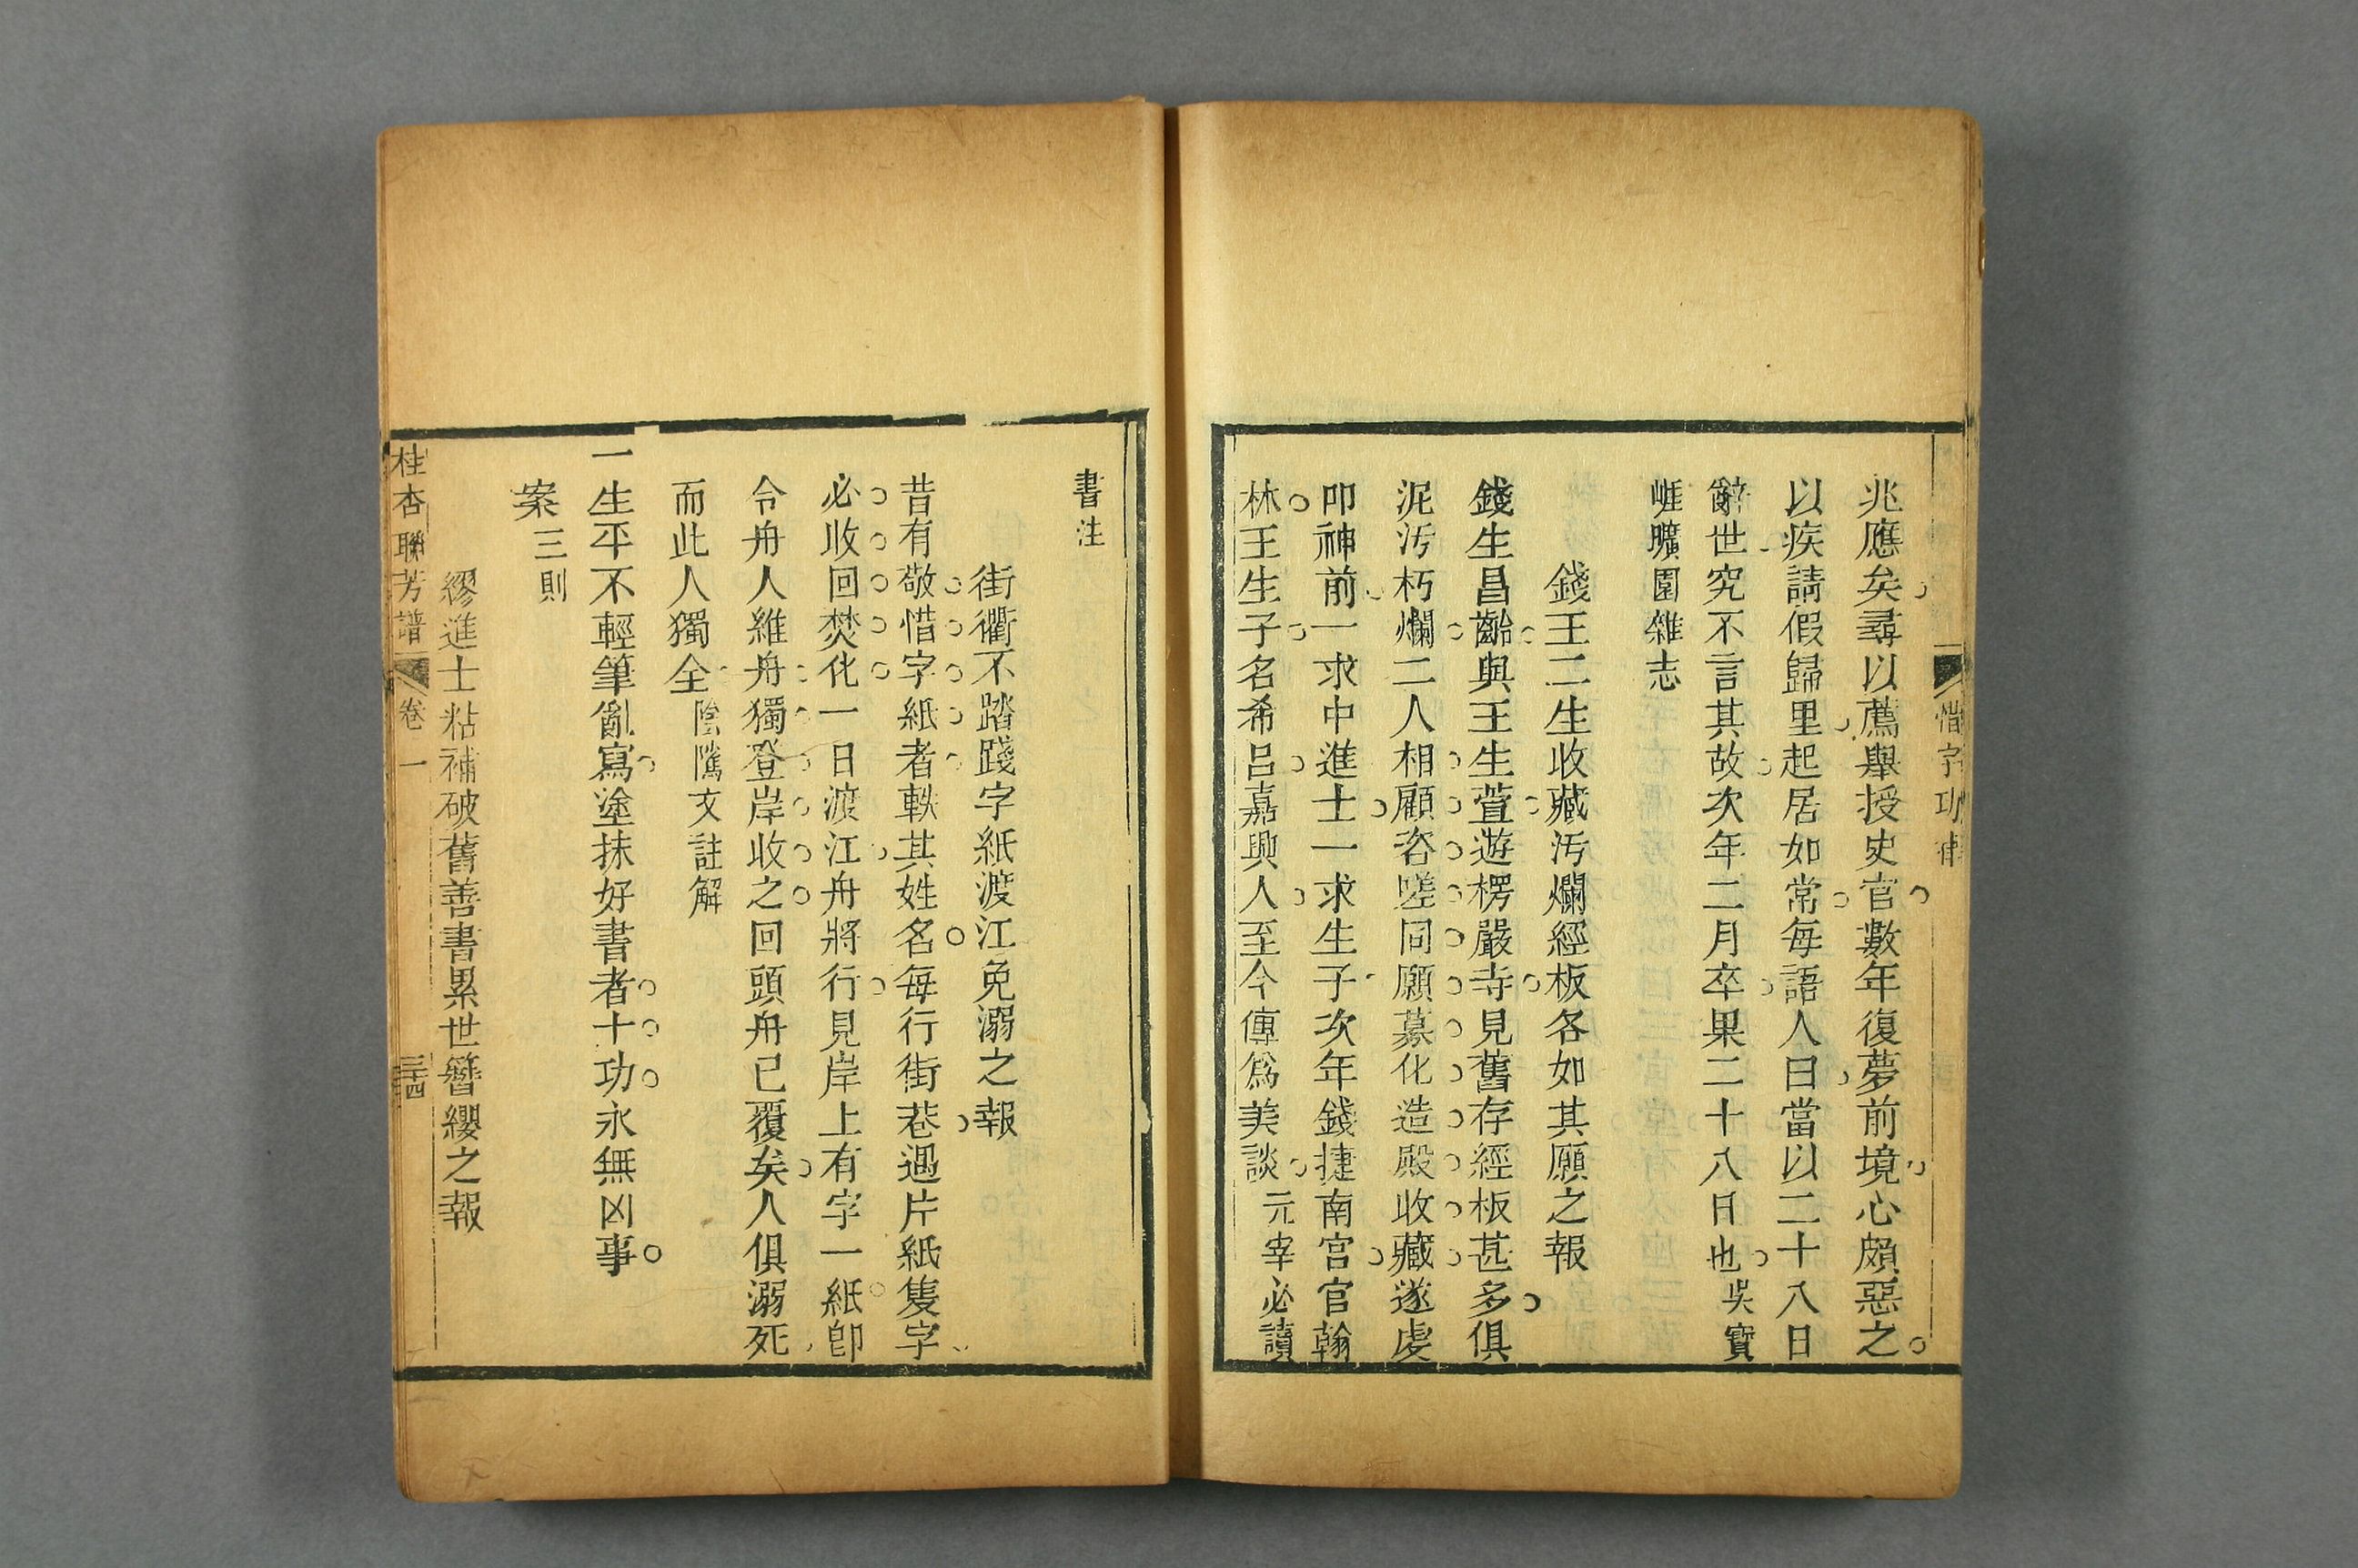 惜字功
兆應矣尋以薦舉授史官數年復夢前境心頗惡之
以疾請假歸里起居如常每語人曰當以二十八日
辭世究不言其故次年二月卒果二十八日也吳寶
崕曠園雜志
錢王二生收藏汚爛經板各如其願之報
錢生昌齡與王生萱遊楞嚴寺見舊存經板甚多俱
泥汚朽爛二人相顧咨嗟同願募化造殿收藏遂虔
叩神前一求中進士一求生子次年錢捷南宮官翰
林王生子名希呂嘉興人至今傳爲美談元宰必讀
書注
街衢不踏踐字紙渡江免溺之報
昔有敬惜字紙者軼其姓名每行街巷遇片紙隻字
必收回焚化一日渡江舟將行見岸上有字一紙卽
令舟人維舟獨登岸收之回頭舟已覆矣人俱溺死
而此人獨全陰騭文註解
一生平不輕筆亂寫塗抹好書者十功永無凶事
案三則
繆進士粘補破舊善書累世簪纓之報
桂杏聯芳譜 卷一 三十四